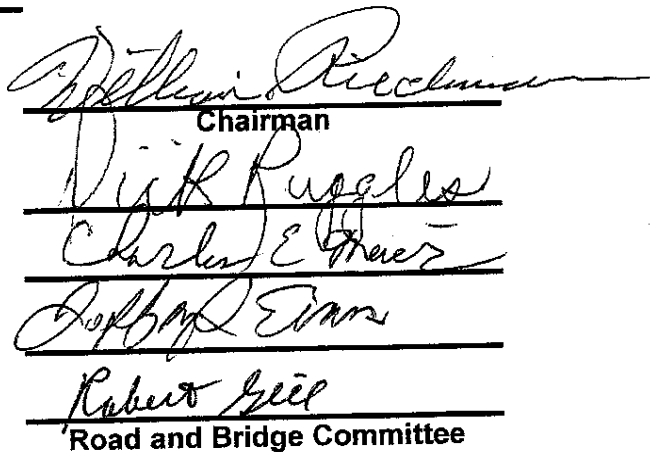 William Riechman
Chairman
Dick Ruggles
Charles E Meier
Evans
Robert Gill
Road and Bridge Committee